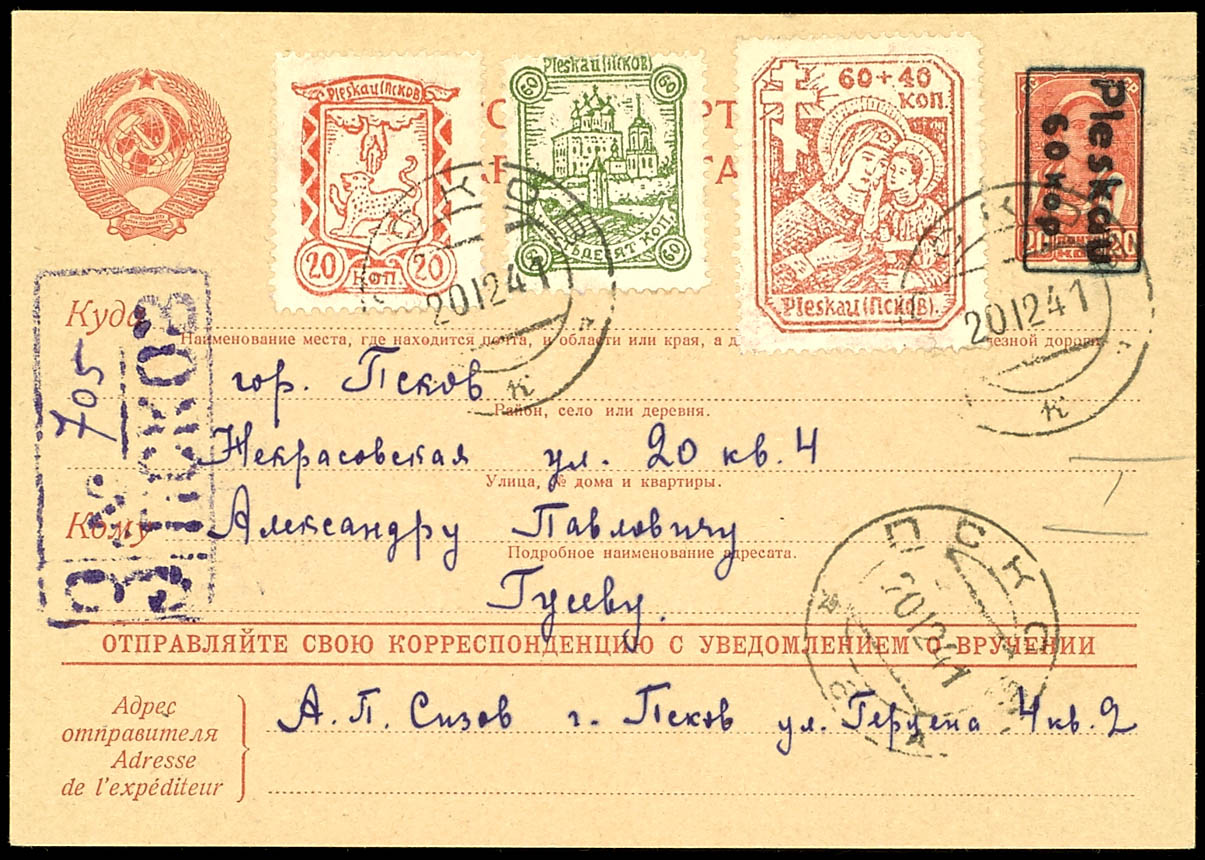 Pleskau (ПСКОВ)
20 КОП. 20
Pleskau (ПСКОВ)
60 60
60 ЬДЕСЯТ КОП. 60
60 + 40
КОП.
Pleskau (ПСКОВ).
Pleskau
60 kop
20 20
ПСКОВ
201241
к
201241
к
Куда
Наименование места, где находится почта, и области или края, а д лезной дороги
гор. Псков
Район, село или деревня.
Некрасовская ул. 20 кв. 4
Улица, № дома и квартиры.
Кому Александру Павловичу
Подробное наименование адресата.
Гусеву.
З ПСКОВ
№ 705
ПСКО
201241
ОТПРАВЛЯЙТЕ СВОЮ КОРРЕСПОНДЕНЦИЮ С УВЕДОМЛЕНИЕМ О ВРУЧЕНИИ
Адрес
отправителя
Adresse
de l'expéditeur
А. П. Сизов г. Псков ул. Герцена 4 кв. 2